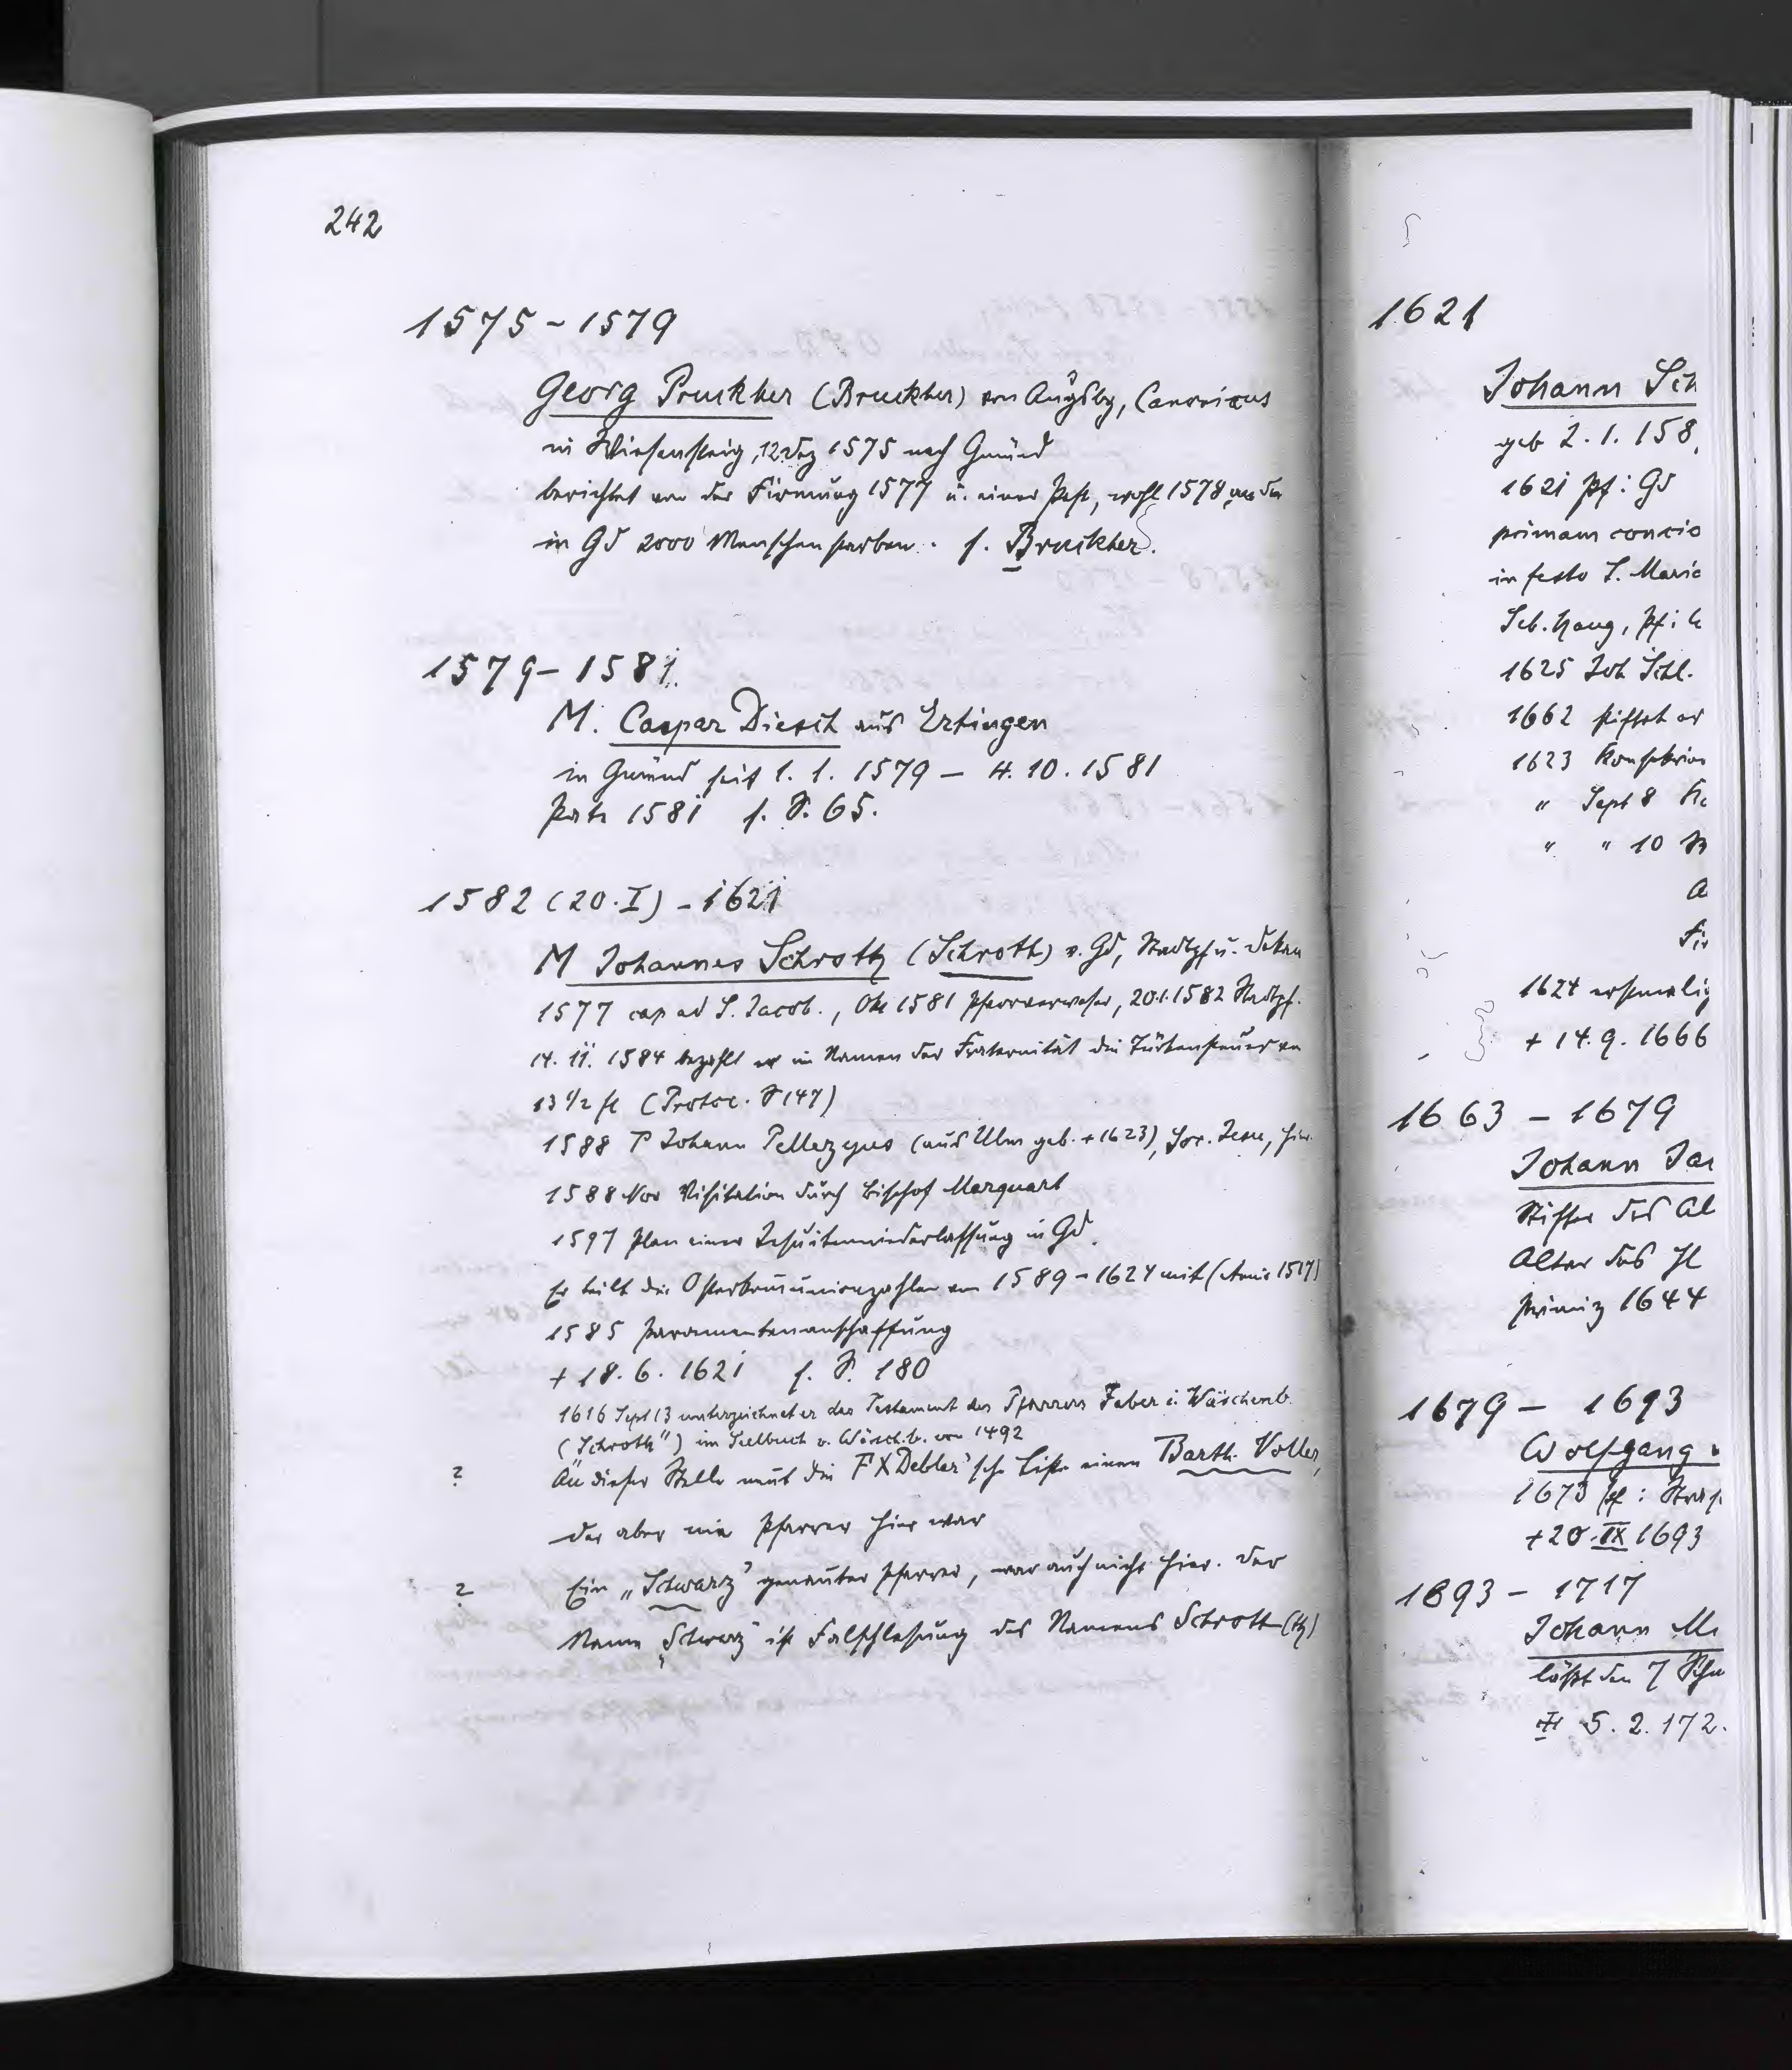 242
1575-1579
Georg Pruckher (Bruckher) von Augsbg, Canonicus
in Wiesensteig, 12 Dez 1575 nach Gmünd
berichtet von der Firmung 1577 u. einer Pest, wohl 1578, an der
in Gd 2000 Menschen starben. s. Bruckher.
1579-1581
M. Caspar Diesch aus Ertingen
in Gmünd seit 1. 1. 1579 – 4. 10. 1581
Pate 1581 s. S. 65.
1582 (20. I) - 1621
M Johannes Schrotz (Schroth) v. Gd, Stadtpf u. Dekan
1577 cap ad S. Jacob., Okt 1581 Pfarrverweser, 20.1.1582 Stadtpf.
14. 11. 1584 bezahlt er im Namen der Fraternität die Türkensteuer von
13 1/2 fl (Protoc. S 147)
1588 P Johann Pellezyus (aus Ulm geb. +1623), Soc. Jesu, hier
1588 Nov Visitation durch Bischof Marquart
1597 Plan einer Jesuitenniederlassung in Gd.
Er teilt die Osterkommunionzahlen von 1589-1624 mit
1585 Paramentenanschaffung
+ 18. 6. 1621 s. S. 180
1616 Sept 13 unterzeichnet er das Testament des Pfarrers Faber i. Wäschenb.
(„Schroth") im Seelbuch v. Wäsch.b. von 1492
? An dieser Stelle nennt die F X Debler'sche Liste einen Barth. Voller,
der aber nie Pfarrer hier war
? Ein „Schwarz" genannter Pfarrer, war auch nicht hier. Der
Name „Schwarz" ist Falschlesung des Namens Schrott (tz)
1621
Johann Sch
geb 2. 1. 158
1621 Pf: Gd
primam concio
in festo S. Maria
Seb. Haug, Pf:
1625 Joh Schl.
1662 stiftet er
1623
" Sept 8
" " 10
1624 erstmalig
+ 14. 9. 1666
1663 - 1679
Johann Ja
Stifter des Al
Altar des hl
Primiz 1644
1679 - 1693
Wolfgang
1673 Pf:
+20. IX 1693
1693 - 1717
Johann M
läßt den 7
+ 5. 2. 172.